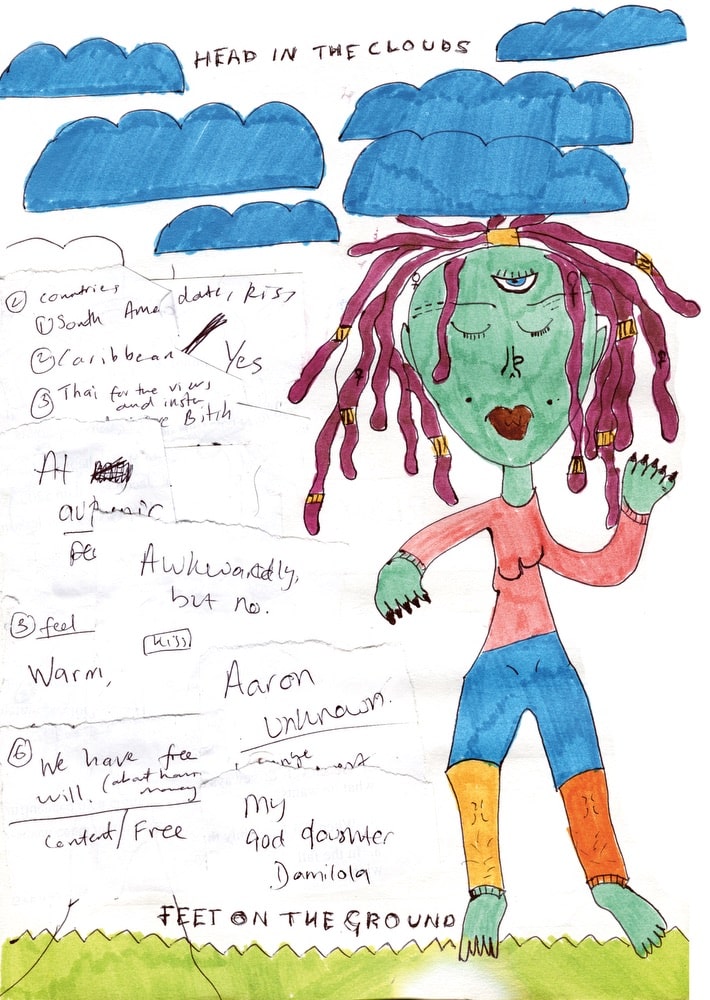 HEAD IN THE CLOUDS
countries
① South Ame
date, kiss
② Caribbean
Yes
③ Thai for the views
and insta
Bitch
At
Awkwardly,
but no.
feel
Kiss
Warm,
Aaron
unknown.
⑥ We have free
will. (about
money
Content/Free
My
God daughter
Damilola
FEET ON THE GROUND